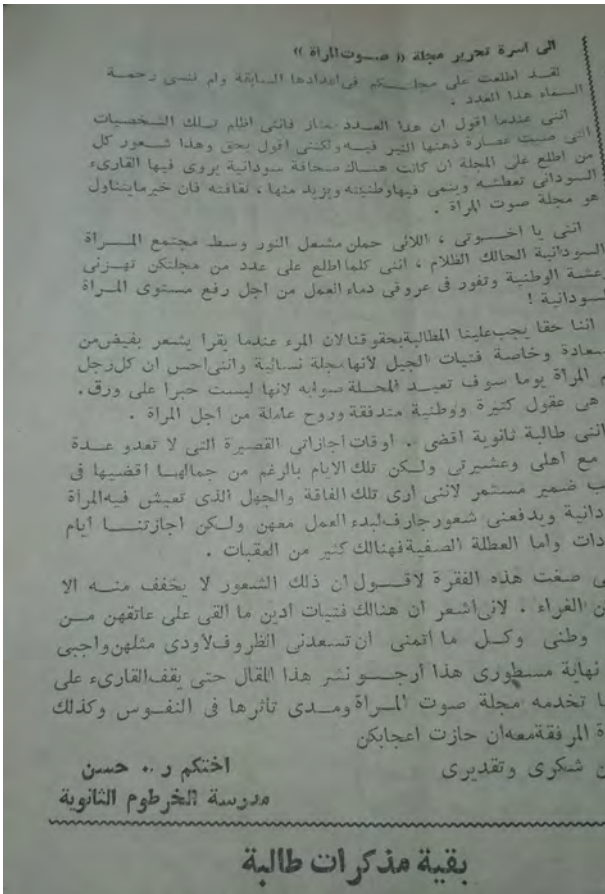 الى اسرة تحرير مجلة « صــوت المرأة »
لقــد اطلعت على مجلتــكم فى اعدادها السابقة ولم ننسى رحمــة
الســماء هذا العدد .
اننى عندما اقول ان هذا العــدد ممتاز فاننى اظلم تــلك الشــخصيات
التى صبت عصارة ذهنها النير فيــه ولكننى اقول بحق وهذا شــعور كل
من اطلع على المجلة ان كانت هنــاك صحافة سودانية يروى فيها القارىء
الســودانى تعطشــه وينمى فيها وطنيته ويزيد منها ، ثقافته فان خير ما يتناول
هو مجلة صوت المرأة .
اننى يا اخــوتى ، اللائى حملن مشــعل النور وسط مجتمع المــرأة
الســودانية الحالك الظلام ، اننى كلما اطلع على عدد من مجلتكن تهــزنى
رعشــة الوطنية وتفور فى عروقى دماء العمل من اجل رفع مستوى المــرأة
الســودانية !
اننا حقا يجب علينا المطالبة بحقوقنا لان المرء عندما يقرأ يشــعر بفيض من
سعادة وخاصة فتيات الجيل لانها مجلة نسائية واننى احس ان كل رجل
المرأة يوما ســوف تعيــد المجــلة صوابه لانها ليست حبرا على ورق .
هى عقول كثيرة ووطنية متدفقة وروح عاملة من اجل المرأة .
اننى طالبة ثانوية اقضى .. اوقات اجازاتى القصيرة التى لا تعدو عــدة
مع اهلى وعشيرتى ولــكن تلك الايام بالرغم من جمالهــا اقضيها فى
ضمير مستمر لاننى ارى تلك الفاقة والجهل الذى تعيش فيه المرأة
ودانية ويدفعنى شعور جارف لبدء العمل معهن ولــكن اجازتنــا ايام
دات واما العطلة الصفية فهنالك كثير من العقبات .
صغت هذه الفقرة لاقــول ان ذلك الشعور لا يخفف منــه الا
ن الغراء . لانى اشعر ان هنالك فتيات ادين ما القى على عاتقهن مــن
وطنى وكــل ما اتمنى ان تسعدنى الظروف لاودى مثلهن واجبى
نهاية مسطورى هذا ارجــو نشر هذا المقال حتى يقف القارىء على
ا تخدمه مجلة صوت المــرأة ومــدى تاثرها فى النفــوس وكذلك
ة المرفقة معه ان حازت اعجابكن
ن شكرى وتقديرى
اختكم ر .. حسن
مدرسة الخرطوم الثانوية
بقية مذكرات طالبة